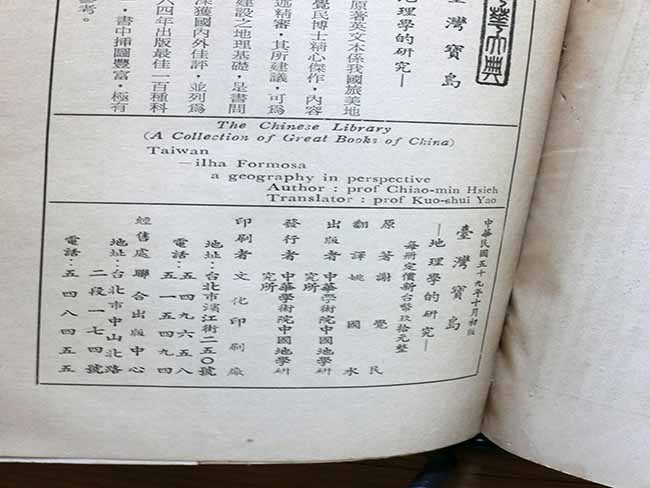 華大典
臺灣寶島
理學的研究—
原著英文本係我國旅美地
覺民博士精心傑作，內容
精密，其所建議，可為
建設之地理基礎，是書問
深獲國內外佳評，並列為
六四年出版最佳一百種科
，書中插圖豐富，極有
參考。
The Chinese Library
(A Collection of Great Books of China)
Taiwan
—ilha Formosa
a geography in perspective
Author : prof Chiao-min Hsieh
Translator : prof Kuo-shui Yao
中華民國五十九年十月初版
臺灣寶島
—地理學的研究—
每冊定價新台幣玖拾元整
原著 謝覺民
翻譯 姚國水
出版者 中華學術院中國地學研究所
發行者 中華學術院中國地學研究所
印刷者 文化印刷廠
地址：台北市濱江街二五〇號
電話：五四九六五八
五一五四九四
經售處 聯合出版中心
地址：台北市中山北路
二段一七四號
電話：五四八四五五